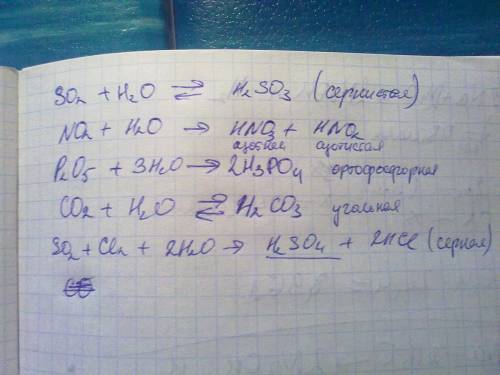 SO₂ + H₂O ⇌ H₂SO₃ (сернистая)
NO₂ + H₂O → HNO₃ + HNO₂
азотная азотистая
P₂O₅ + 3H₂O → 2H₃PO₄ ортофосфорная
CO₂ + H₂O ⇌ H₂CO₃ угольная
SO₂ + Cl₂ + 2H₂O → H₂SO₄ + 2HCl (серная)